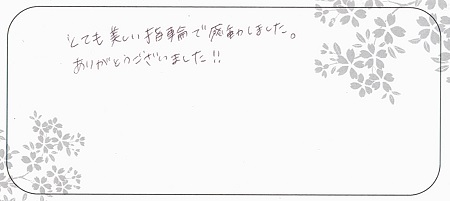 とても美しい指輪で感動しました。
ありがとうございました!!